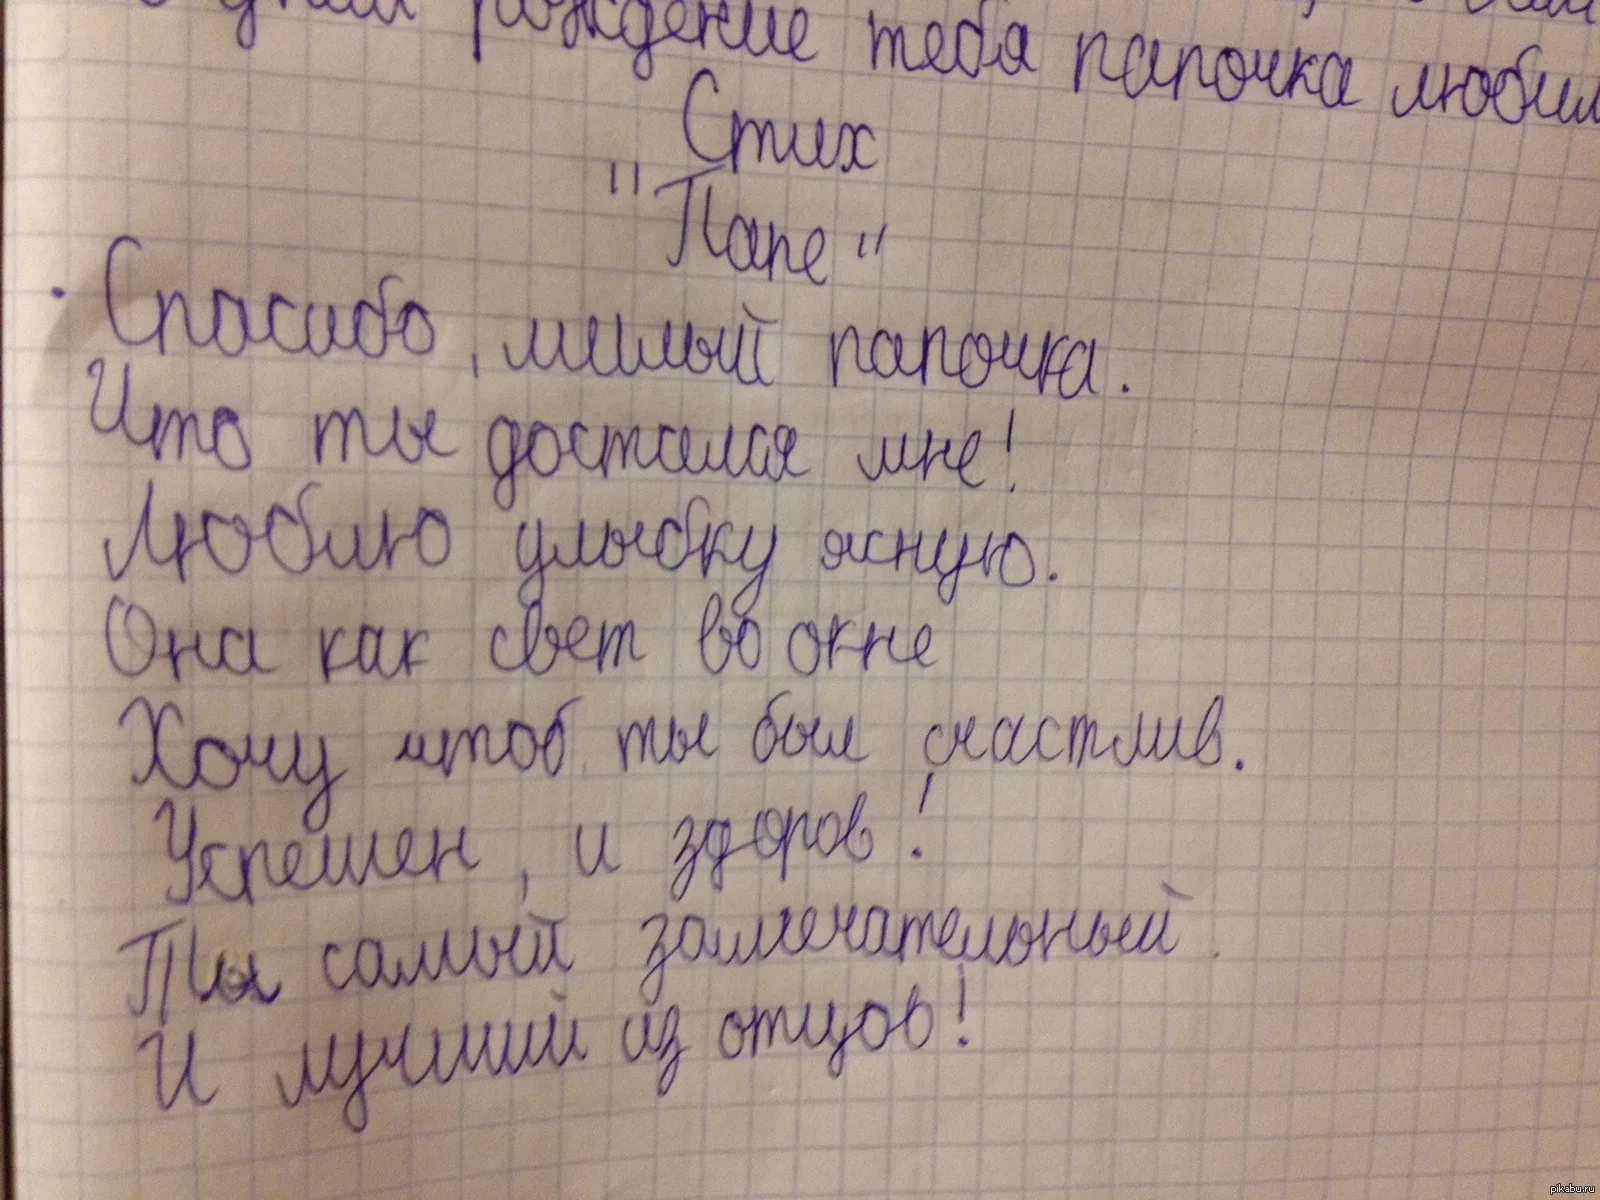 рождение тебя папочка любим
Стих
"Папе"
Спасибо, милый папочка.
Что ты достался мне!
Люблю улыбку ясную.
Она как свет во окне
Хочу чтоб ты был счастлив.
Успешен, и здоров!
Ты самый замечательный.
И лучший из отцов!
pikabu.ru